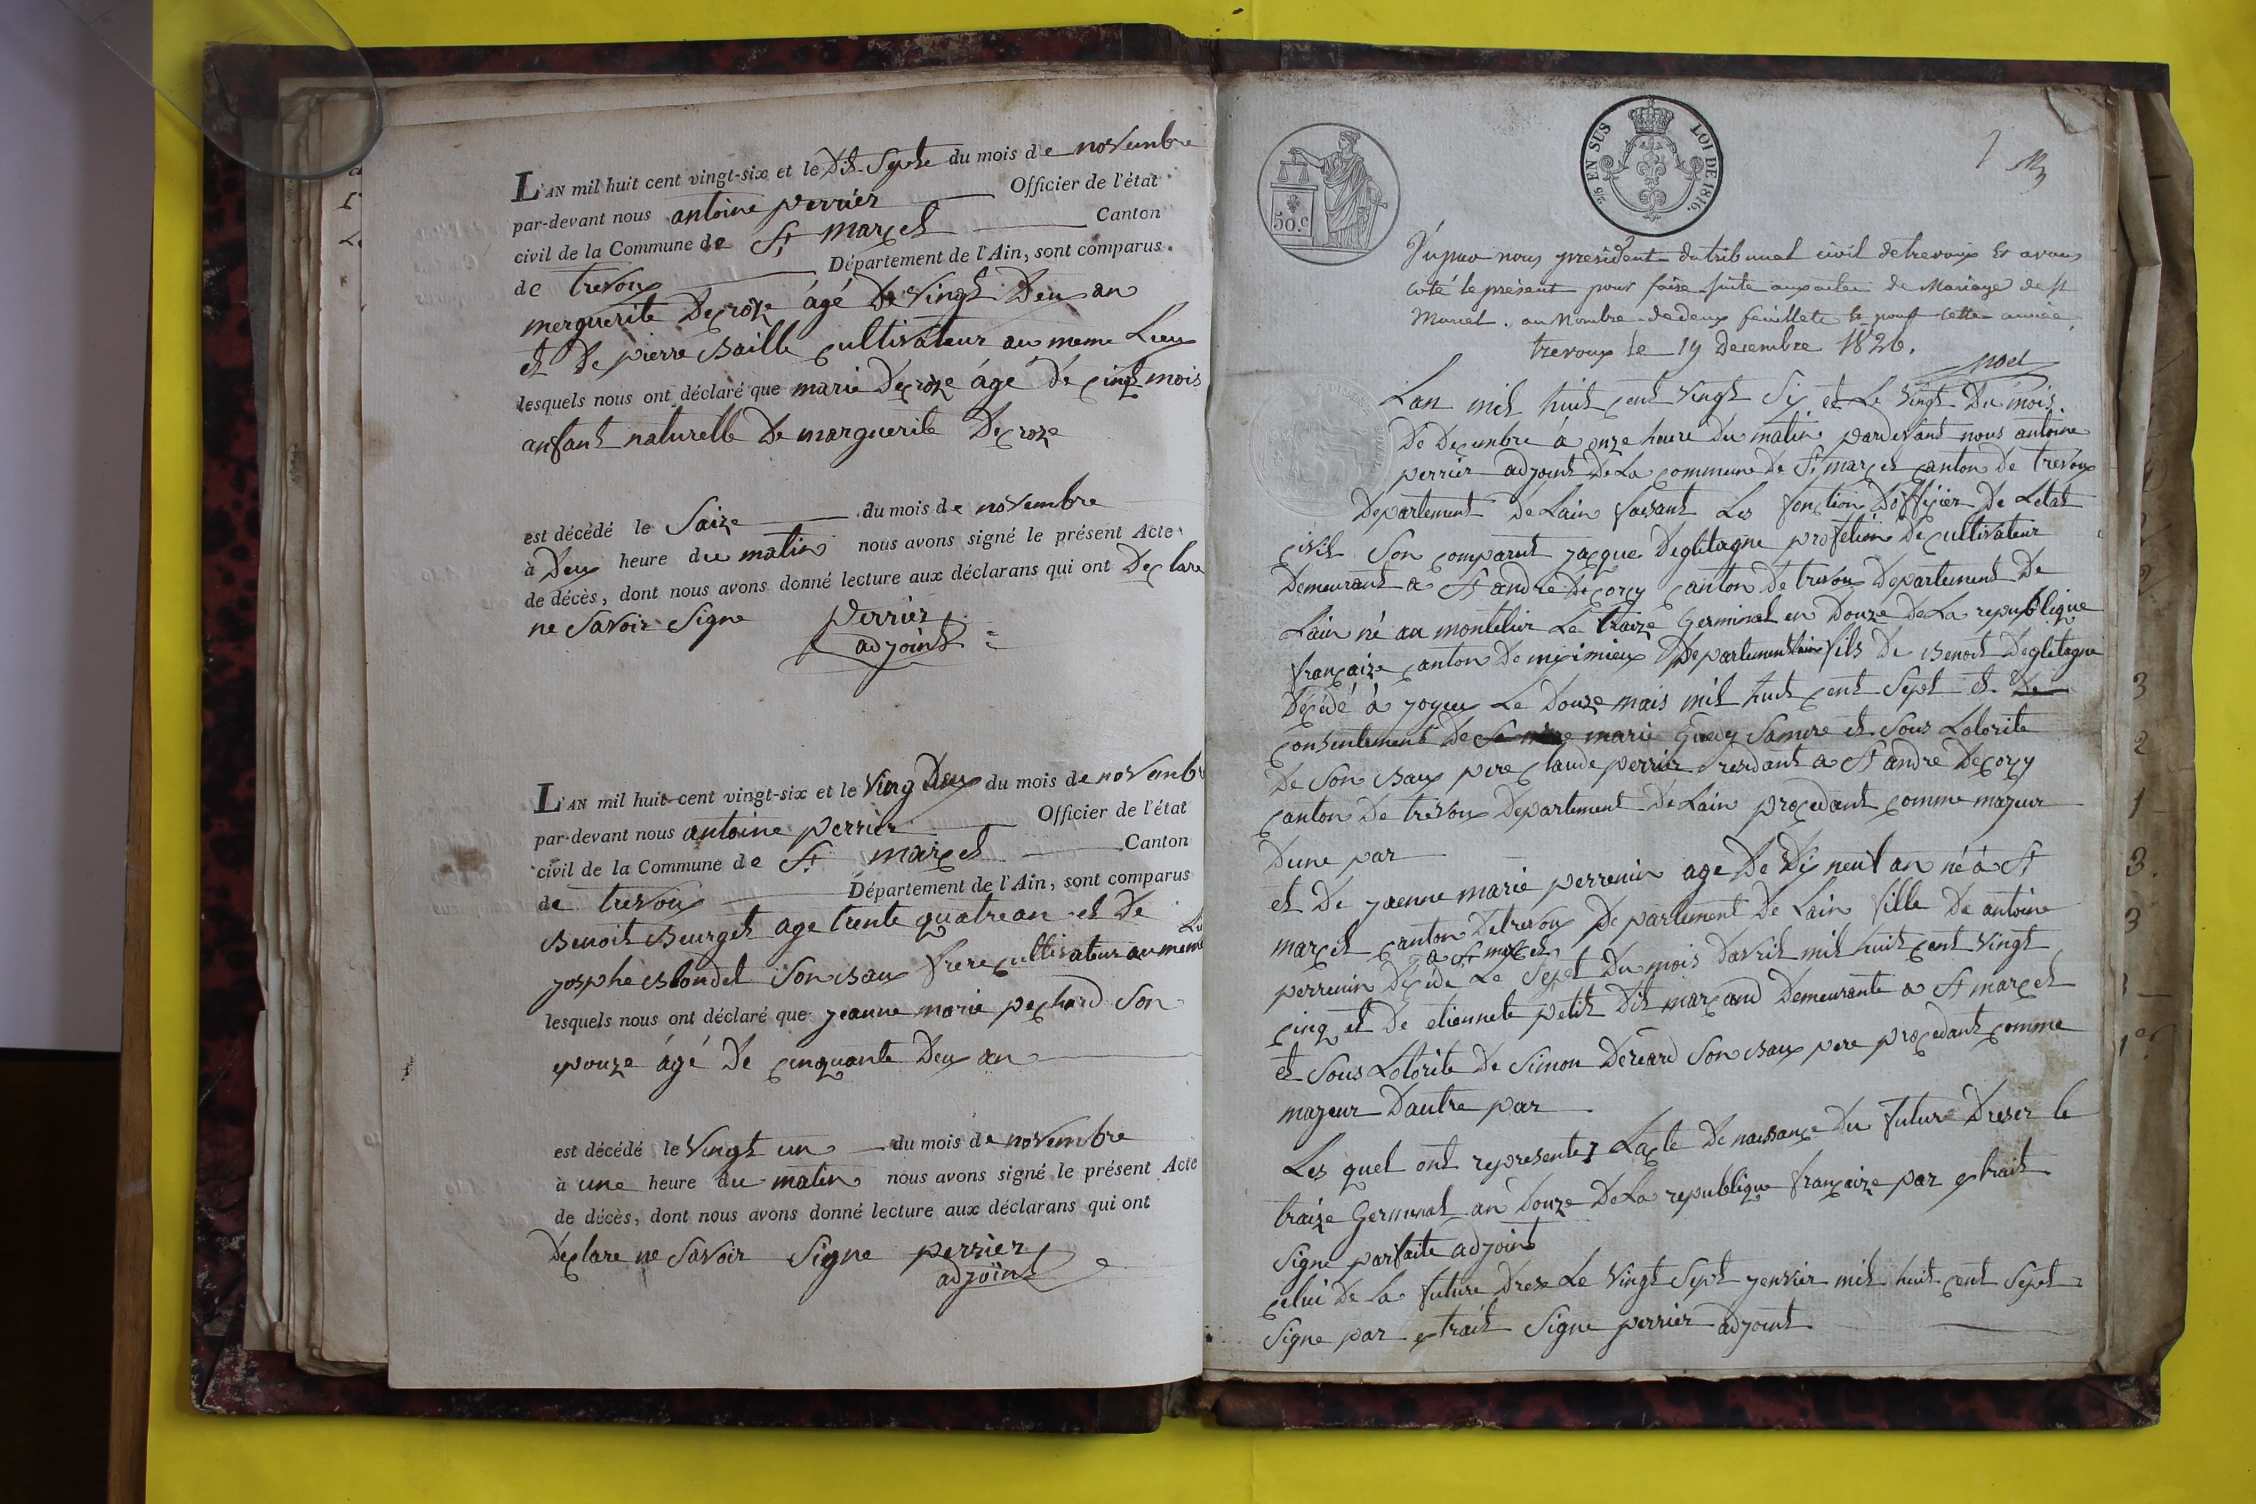 L'AN mil huit cent vingt-six et le Dix Septe du mois de novembre
par-devant nous antoine perrier Officier de l'état
civil de la Commune de St marcel Canton
de trevoux Département de l'Ain, sont comparus
merguerite Decroze ágé De vingt Deu an
et De pierre Baille cultivateur au meme Lieu
lesquels nous ont déclaré que marie Decroze ágé De cinqt mois
anfant naturelle De marguerite Decroze
est décédé le Saize du mois de novembre
à Deux heure du matin nous avons signé le présent Acte
de décès, dont nous avons donné lecture aux déclarans qui ont Declare
ne Savoir Signe perrier
adjoint
L'AN mil huit cent vingt-six et le Ving Deux du mois de novembr
par-devant nous antoine perrier Officier de l'état
civil de la Commune de St marcel Canton
de trevoux Département de l'Ain, sont comparus
Benoit Beurget age trente quatre an et De
josphe Blondel Son Baux frere cultivateur au meme Li
lesquels nous ont déclaré que jeanne marie pechard Son
epouze ágé De cinquante Deux an
est décédé le Vingt un du mois de novembre
à une heure du matin nous avons signé le présent Acte
de décès, dont nous avons donné lecture aux déclarans qui ont
Declare ne Savoir Signe perrier
adjoint
25 EN SUS LOI DE 1816.
50.c
nous président du tribunal civil de trevoux et avons
coté le présent pour faire suite aux actes de Mariage de St
Marcel. au Nombre de deux feuillets pour cette année.
trevoux le 19 Decembre 1826.
noel
Lan mil huit cent vingt Six et Le Vingt Du mois
De Decembre à onze heure Du matin pardevant nous antoine
perrier adjoint De La commune De St marcel canton De trevoux
Departement De Lain faisant Les fonction D'officier De Letat
civil Son comparut jacque Degletagne profétion De cultivateur
Demeurant a St andré De corcy canton De trevoux Departement De
Lain né au montelier Le traize Germinal en Douze De La republique
françaize canton De meximieux Departement Lain fils De Benoit Degletagne
Decedé à joyeux Le Douze mais mil huit cent Sept et De
consentement De Sa mere marie Guedy Samere et Sous Lotorite
De Son Baux pere claude perrier residant a St andré De corcy
canton De trevoux Departement De Lain procedant comme majeur
Dune par
et De jaenne marie perrenin age De Dix neuf an né à St
marcel canton De trevoux Departement De Lain fille De antoine
a St marcel
perrenin Decede Le Sept Du mois Davril mil huit cent Vingt
cinq et De etiennete petit Dit marcand Demeurante a St marcel
et Sous Lotorite De Simon Dereard Son Baux pere procedant comme
majeur Dautre par
Les quel ont representez Lacte De naissance Du future Dreser le
traize Germinal an Douze De La republique françaize par extrait
Signe parfaite adjoint
celui De La future Drese Le Vingt Sept jenvier mil huit cent Sept
Signe par extrait Signe perrier adjoint